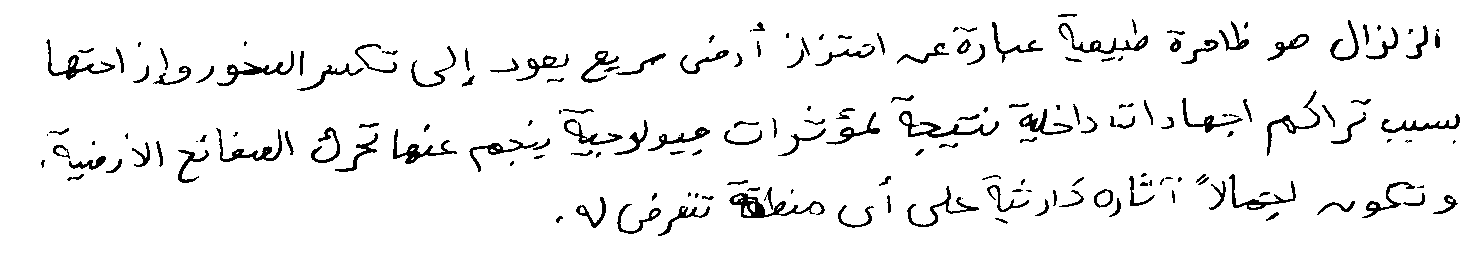 الزلزال هو ظاهرة طبيعية عبارة عن اهتزاز أرضي سريع يعود إلى تكسر الصخور وإزاحتها
بسبب تراكم اجهادات داخلية نتيجة لمؤثرات جيولوجية ينجم عنها تحرك الصفائح الأرضية.
وتكون إجمالاً آثاره كارثية على أي منطقة تتعرض له.